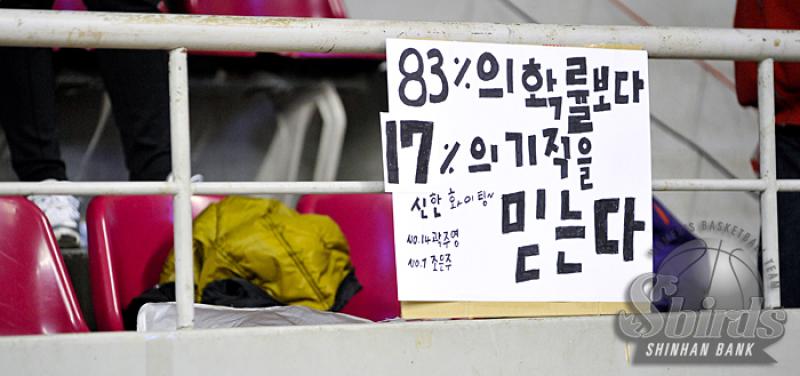 83%의 확률보다
17%의 기적을
믿는다
신한 화이팅~
NO.14 곽주영
NO.7 조은주
WOMEN'S BASKETBALL TEAM
S birds
SHINHAN BANK